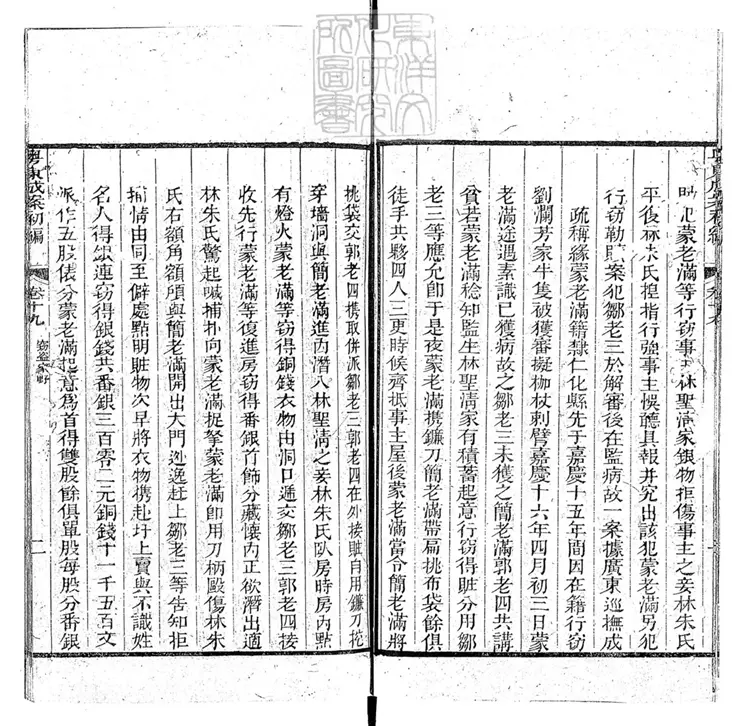 東洋文
化研究
所圖書
粵東成案初編
卷十九
蒙老滿等行竊事主林聖清家銀物拒傷事主之妾林朱氏
平復林朱氏揑指行強事主悞聽具報并究出該犯蒙老滿另犯
行竊勒贖案犯鄒老三於解審後在監病故一案據廣東巡撫咸
疏稱緣蒙老滿籍隸仁化縣先于嘉慶十五年間因在籍行竊
劉瀾芳家牛隻破獲審擬枷杖刺臂嘉慶十六年四月初三日蒙
老滿途遇素識已獲病故之鄒老三未獲之簡老滿郭老四共講
貧苦蒙老滿稔知監生林聖清家有積蓄起意行竊得贓分用鄒
老三等應允卽于是夜蒙老滿携鐮刀簡老滿帶扁挑布袋餘俱
徒手共夥四人三更時候齊抵事主屋後蒙老滿當令簡老滿將
挑袋交郭老四携取併派鄒老三郭老四在外接贓自用鐮刀挖
穿墻洞與簡老滿進內潛入林聖清之妾林朱氏臥房時房內點
有燈火蒙老滿等竊得銅錢衣物由洞口遞交鄒老三郭老四接
收先行蒙老滿等復進房竊得番銀首飾分藏懷內正欲潛出適
林朱氏驚起喊捕扑向蒙老滿捉拏蒙老滿卽用刀柄毆傷林朱
氏右額角額頎與簡老滿開出大門迯逸赶上鄒老三等告知拒
捕情由同至僻處點明贓物次早將衣物携赴圩上賣與不識姓
名人得銀連竊得銀錢共番銀三百零二元銅錢十一千五百文
派作五股俵分蒙老滿起意爲首得雙股餘俱單股每股分番銀
粵東成案初編
卷十九
竊盜
二